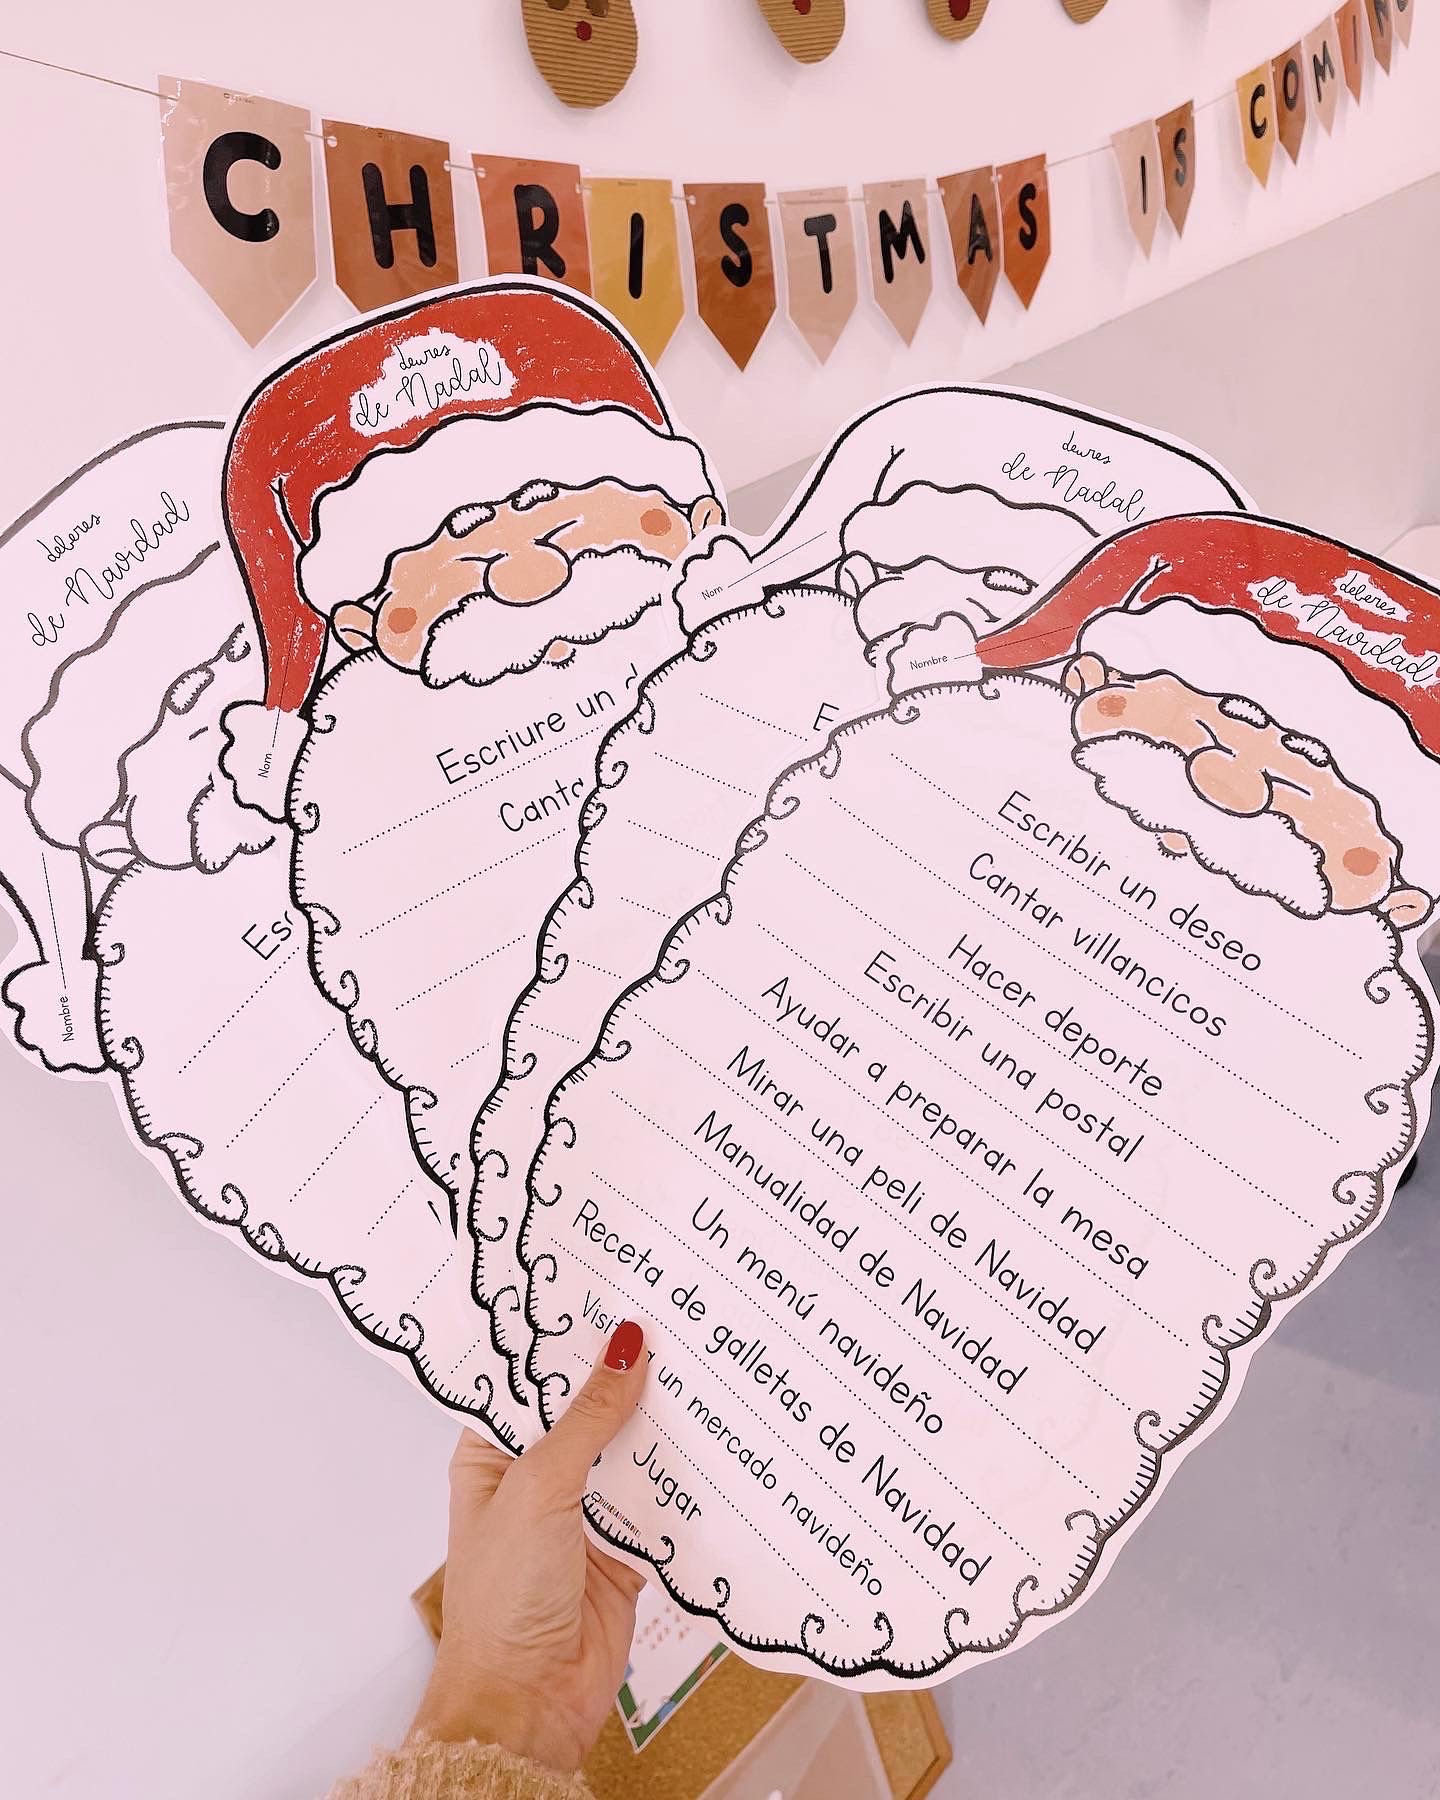 CHRISTMAS IS COMING
deures
de Nadal
deberes
de Navidad
deures
de Nadal
deberes
de Navidad
Nom
Nom
Nombre
Nombre
Escriure un
Escribir un deseo
Cantar villancicos
Hacer deporte
Escribir una postal
Ayudar a preparar la mesa
Mirar una peli de Navidad
Manualidad de Navidad
Un menú navideño
Receta de galletas de Navidad
un mercado navideño
Jugar